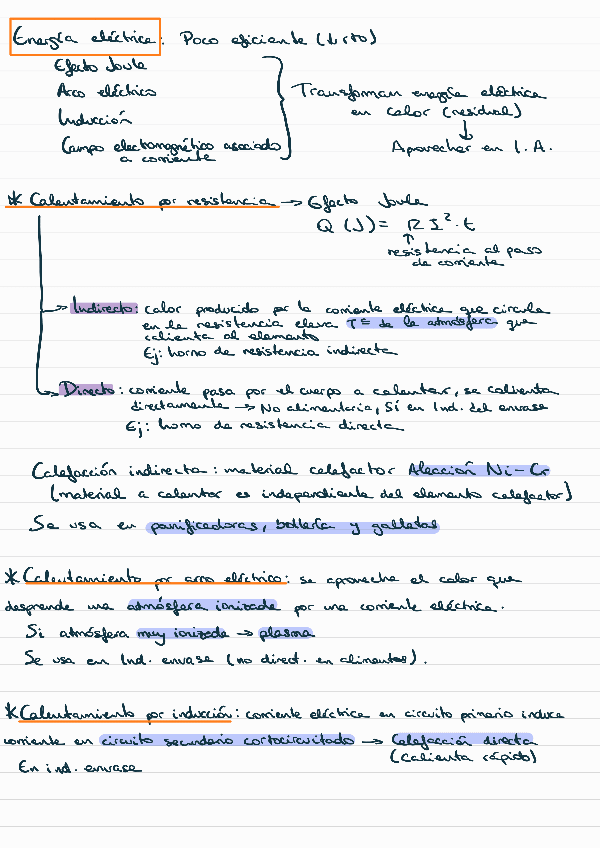 Energía eléctrica: Poco eficiente (↓ rto)
Efecto Joule
Arco eléctrico
Inducción
Campo electromagnético asociado
a corriente
Transforman energía eléctrica
en calor (residual)
↓
Aprovechar en I.A.
* Calentamiento por resistencia → Efecto Joule
Q (J) = R I² · t
↑
resistencia al paso
de corriente
→ Indirecto: calor producido por la corriente eléctrica que circula
en la resistencia eleva Tª de la atmósfera que
calienta al elemento
Ej: horno de resistencia indirecta
→ Directo: corriente pasa por el cuerpo a calentar, se calienta
directamente → No alimentaria, Sí en Ind. del envase
Ej: horno de resistencia directa
Calefacción indirecta: material calefactor Aleación Ni-Cr
(material a calentar es independiente del elemento calefactor)
Se usa en panificadoras, bollería y galletas
* Calentamiento por arco eléctrico: se aprovecha el calor que
desprende una atmósfera ionizada por una corriente eléctrica.
Si atmósfera muy ionizada → plasma
Se usa en Ind. envase (no direct. en alimentos).
* Calentamiento por inducción: corriente eléctrica en circuito primario induce
corriente en circuito secundario cortocircuitado → Calefacción directa
(calienta rápido)
En ind. envase